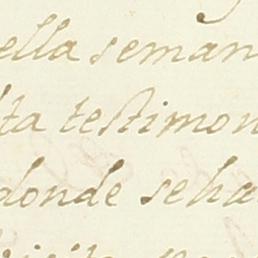 ella seman
ta testimon
donde seha